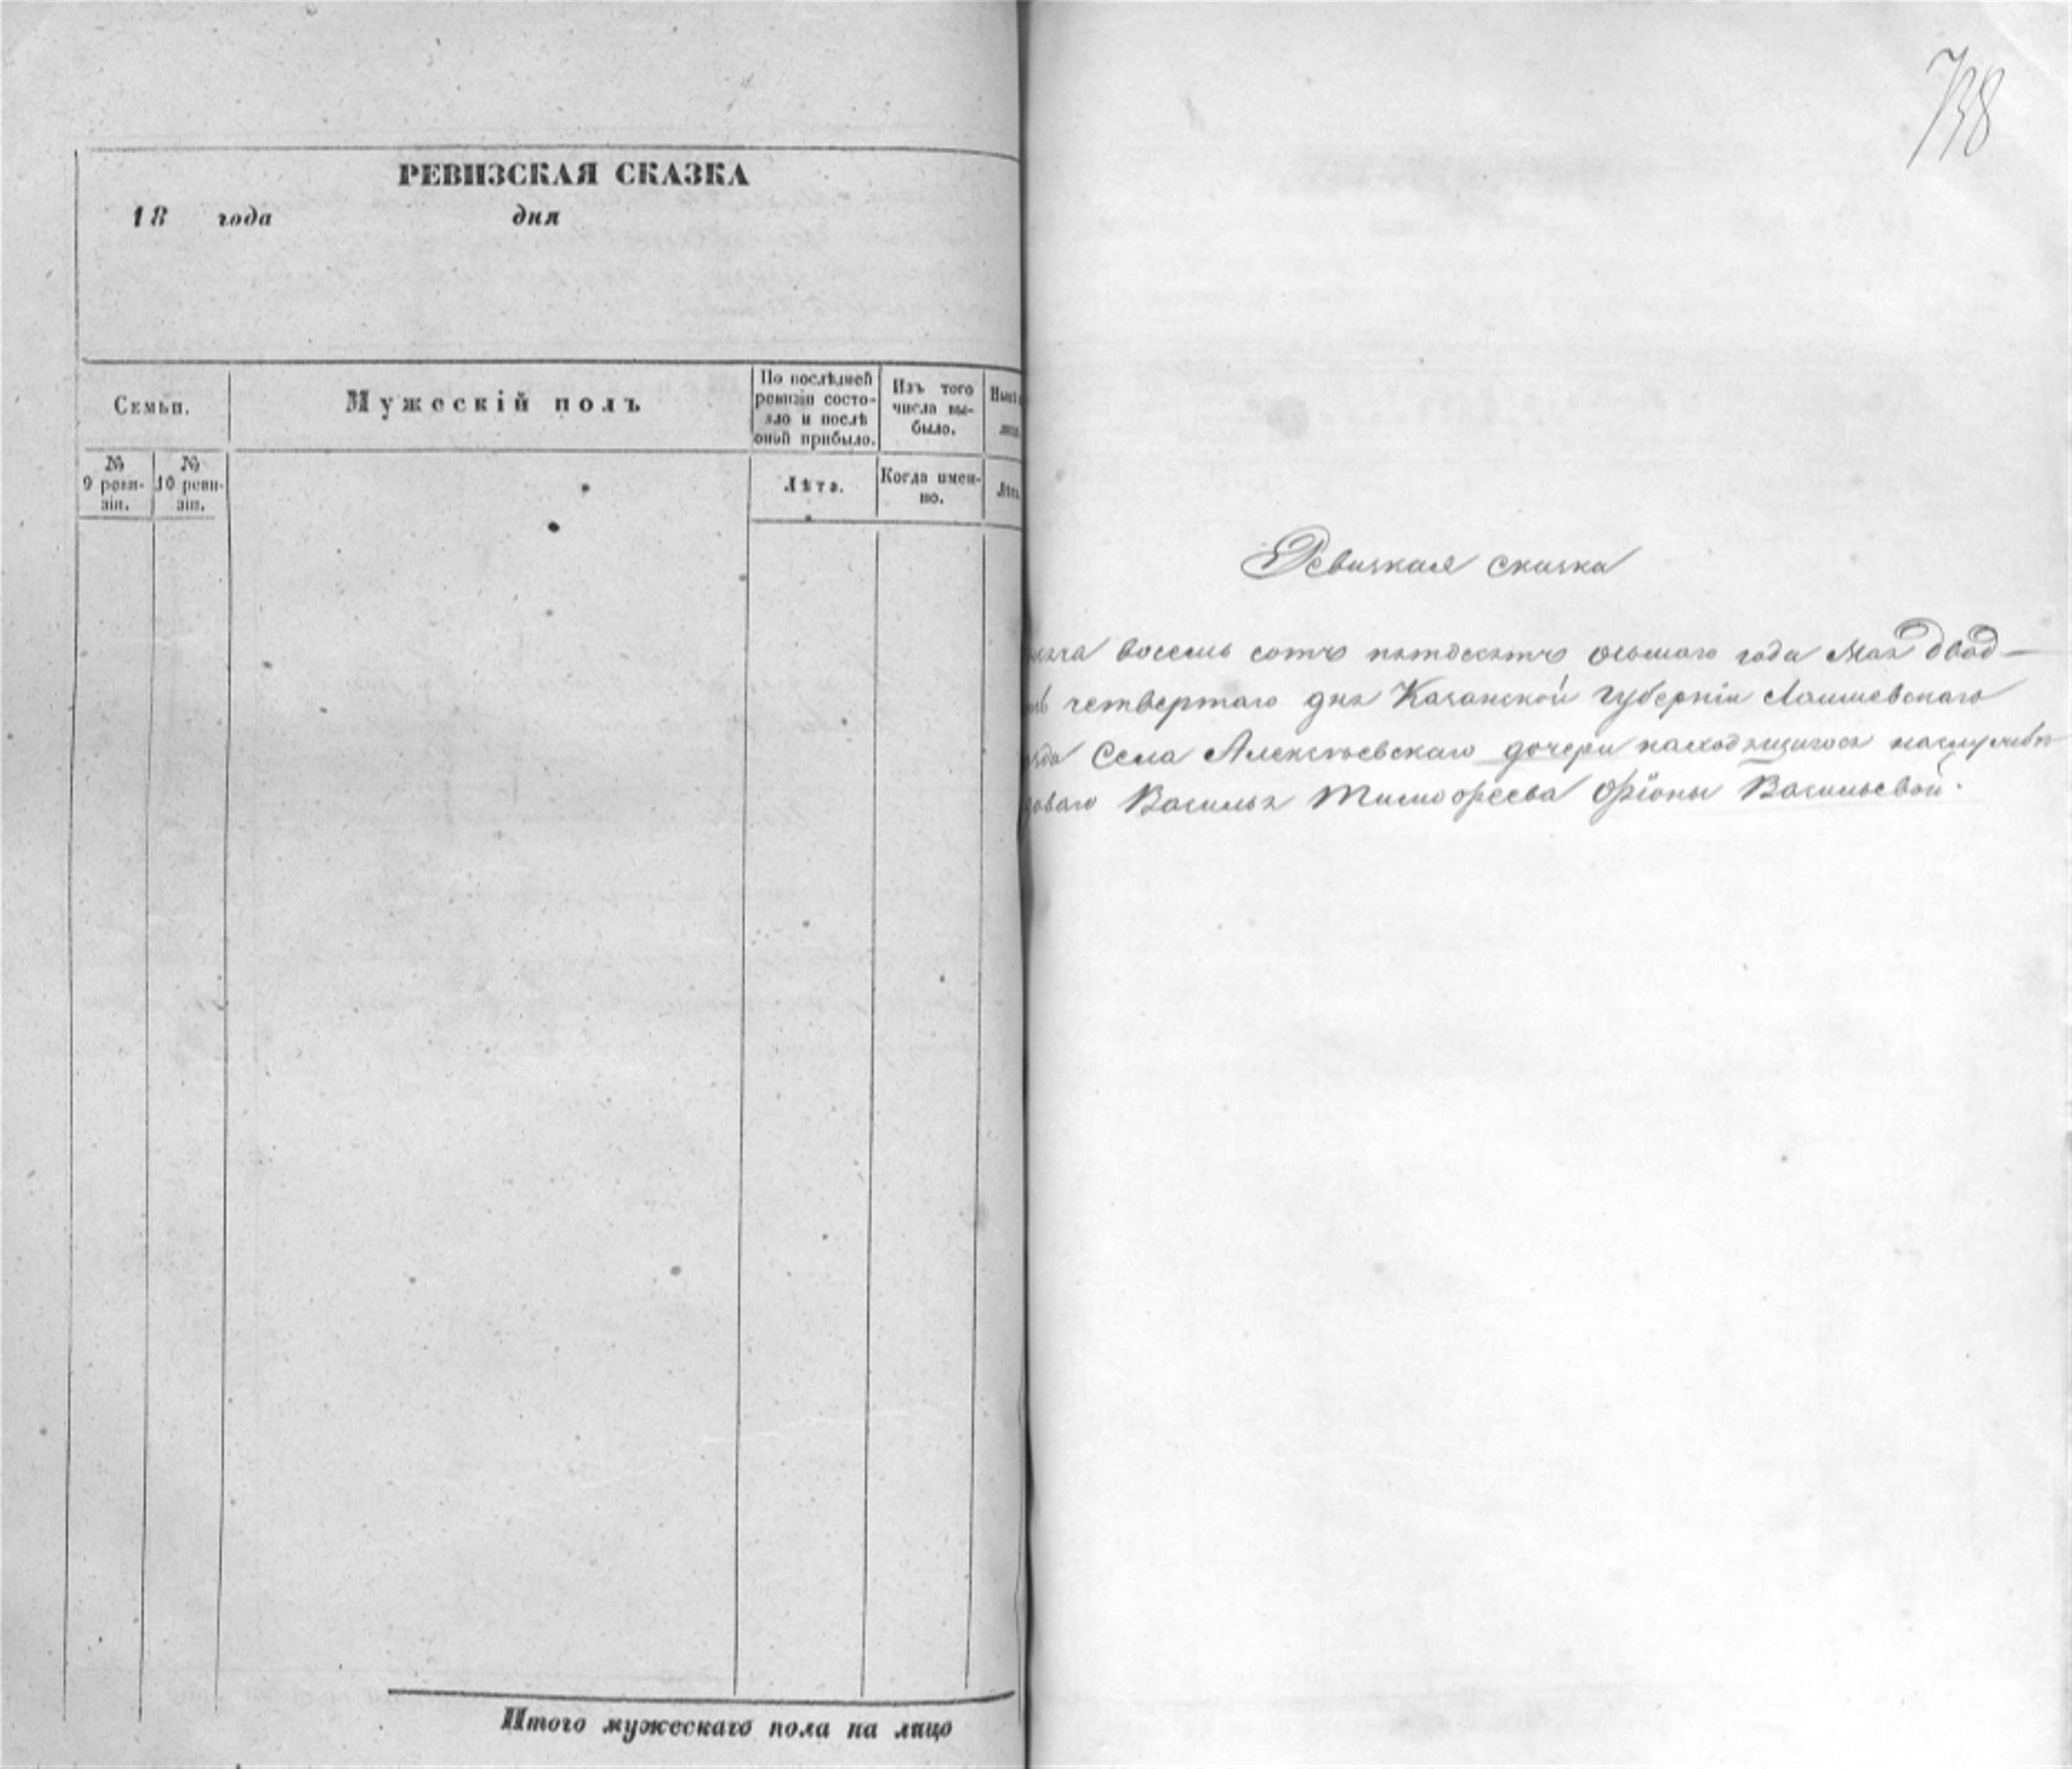 РЕВИЗСКАЯ СКАЗКА
18 года дня
Семьи.
Мужескій полъ
По послѣдней
ревизіи состо-
яло и послѣ
оной прибыло.
Изъ того
числа вы-
было.
№
9 реви-
зіи.
№
10 реви-
зіи.
Лѣта.
Когда имен-
но.
Итого мужескаго пола на лицо
738
Ревизкая сказка
восемь сотъ пятдесятъ осьмаго года Мая двад-
четвертаго дня Казанской Губерніи Лаишевскаго
Села Алексѣевскаго дочери находящигося
Василья Тимофеева Васильевой.